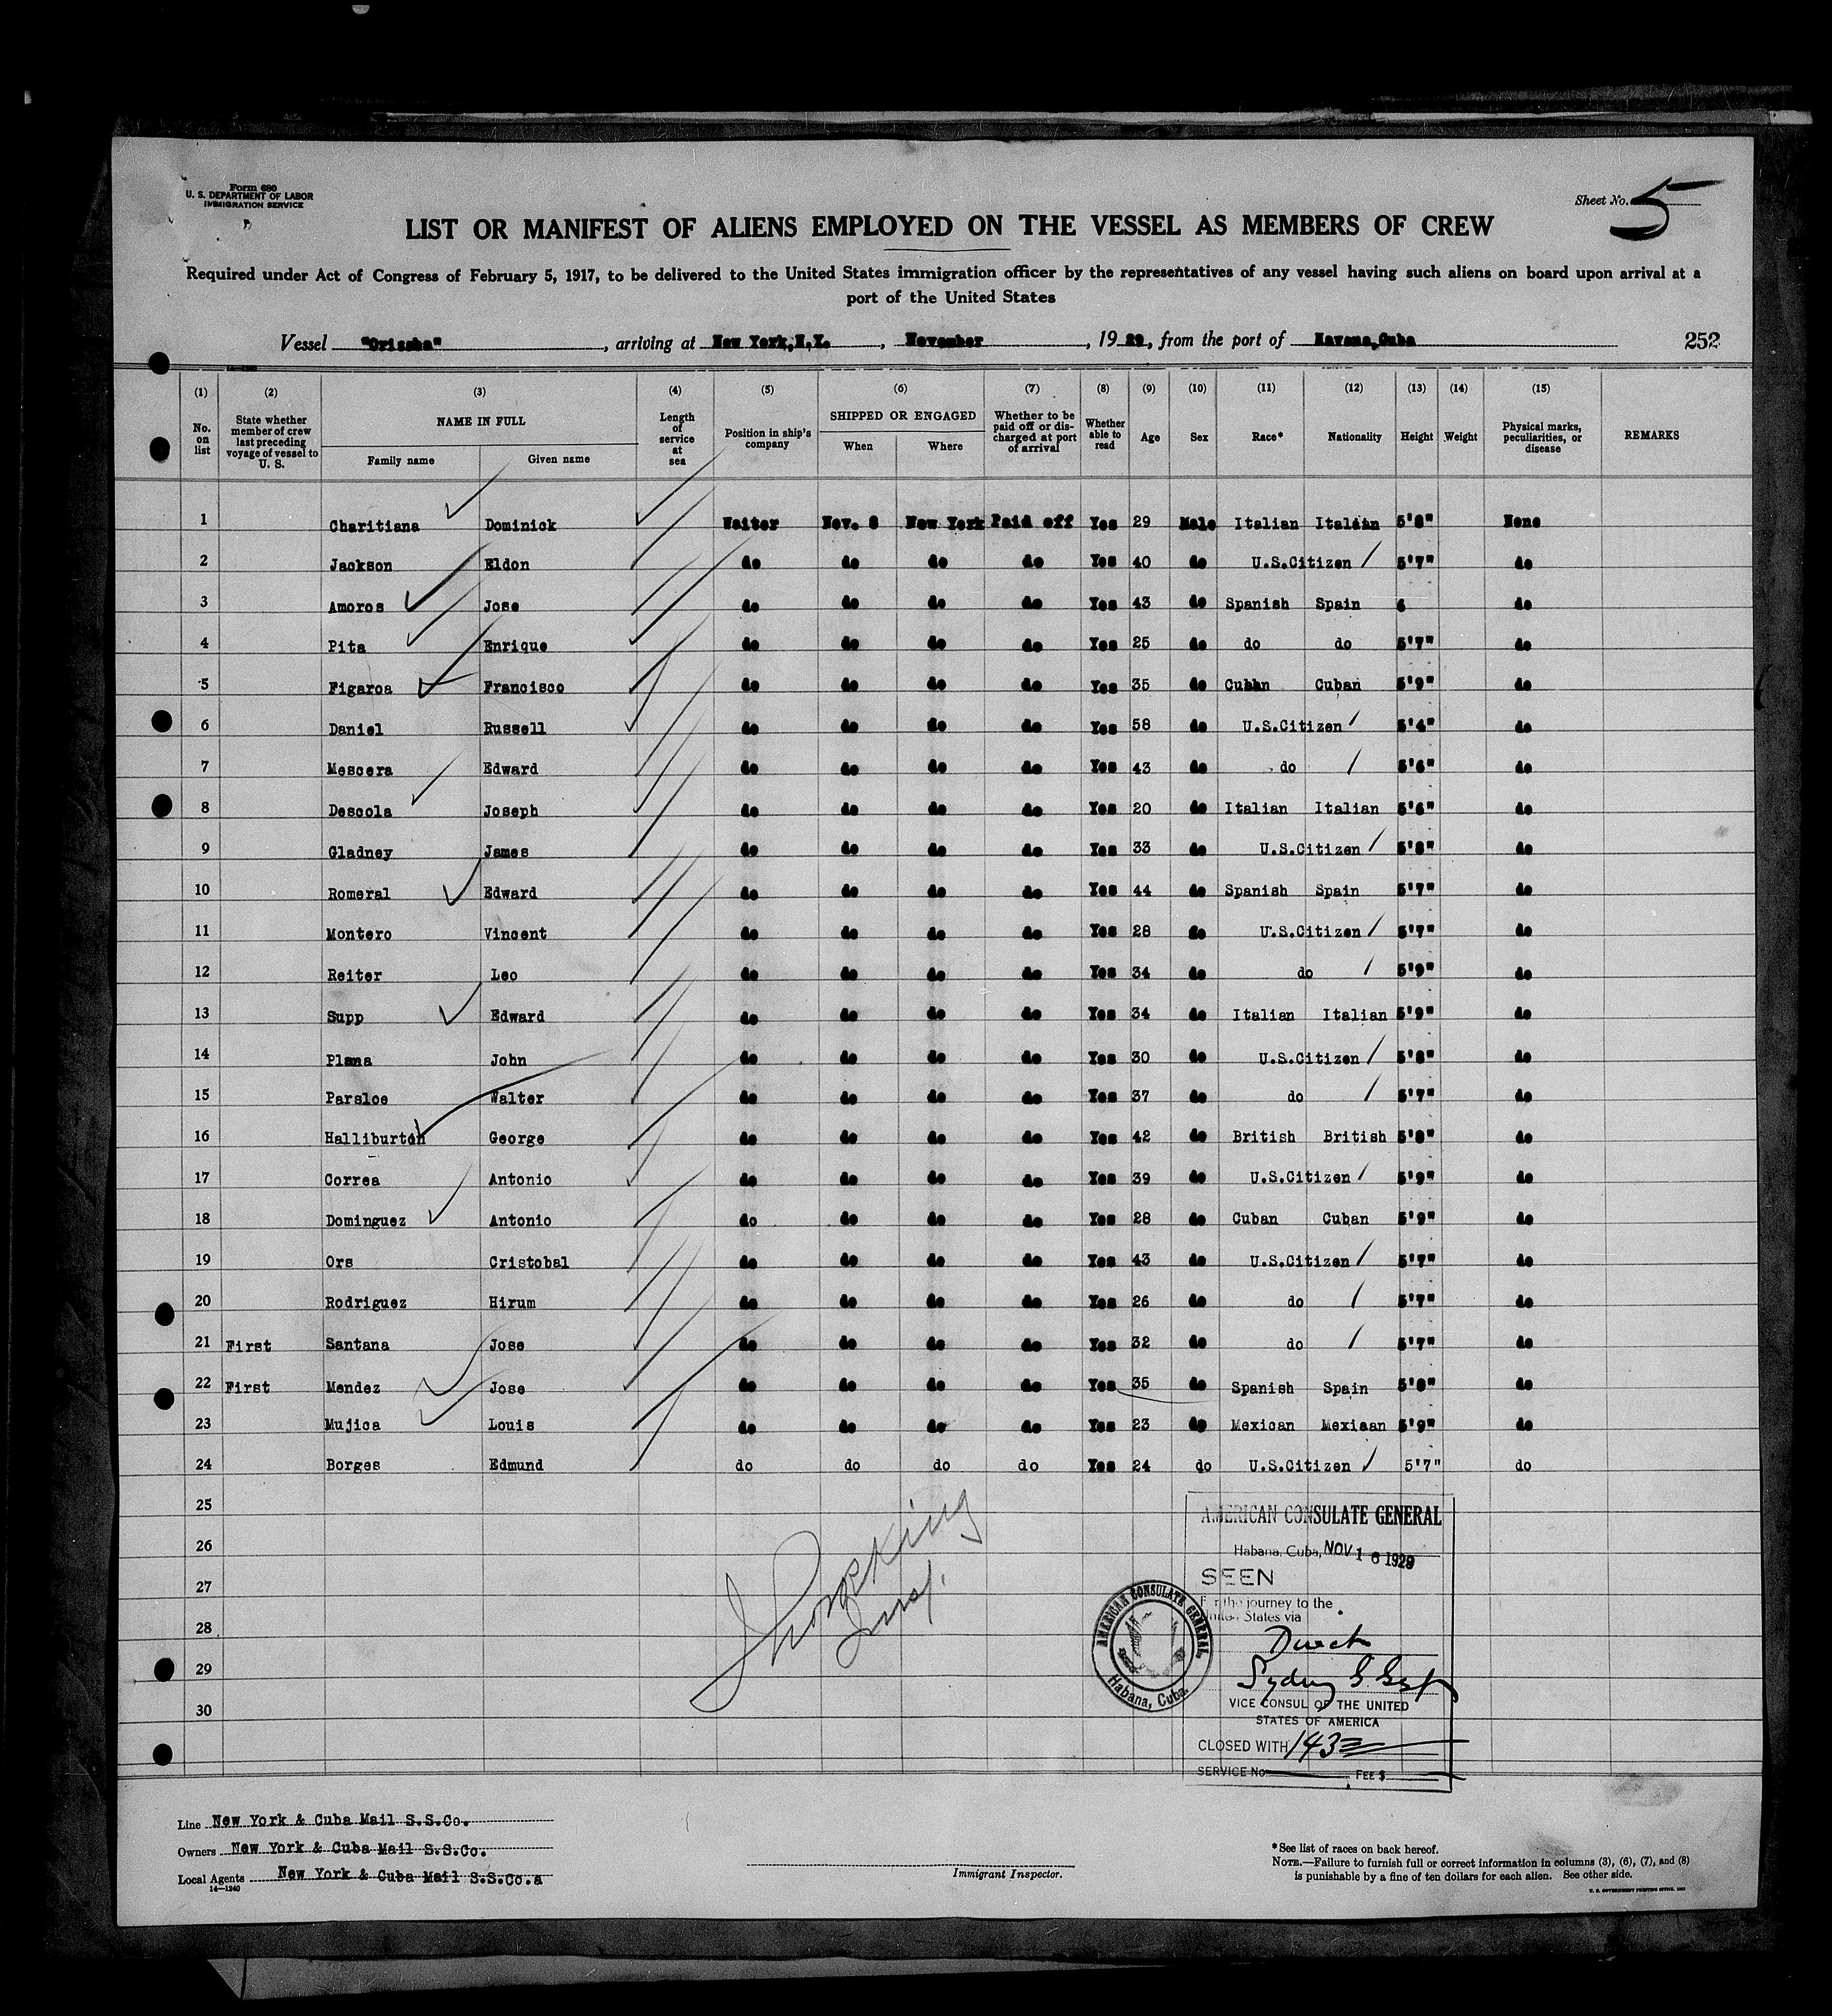 Form 680
U. S. DEPARTMENT OF LABOR
IMMIGRATION SERVICE
Sheet No. 5
LIST OR MANIFEST OF ALIENS EMPLOYED ON THE VESSEL AS MEMBERS OF CREW
Required under Act of Congress of February 5, 1917, to be delivered to the United States immigration officer by the representatives of any vessel having such aliens on board upon arrival at a
port of the United States
Vessel "Orissba", arriving at New York,N.Y., November, 1929, from the port of Havana,Cuba 252
(1) (2) (3) (4) (5) (6) (7) (8) (9) (10) (11) (12) (13) (14) (15)
No. on list State whether member of crew last preceding voyage of vessel to U. S. NAME IN FULL Family name Given name Length of service at sea Position in ship's company SHIPPED OR ENGAGED When Where Whether to be paid off or discharged at port of arrival Whether able to read Age Sex Race* Nationality Height Weight Physical marks, peculiarities, or disease REMARKS
1 Charitiana Dominick Waiter Nov. 8 New York Paid off Yes 29 Male Italian Italian 5'8" None
2 Jackson Eldon do do do do Yes 40 do U.S.Citizen 5'7" do
3 Amoros Jose do do do do Yes 43 do Spanish Spain 6 do
4 Pita Enrique do do do do Yes 25 do do do 5'7" do
5 Figaroa Francisco do do do do Yes 35 do Cuban Cuban 5'9" do
6 Daniel Russell do do do do Yes 58 do U.S.Citizen 5'4" do
7 Mescera Edward do do do do Yes 43 do do 5'6" do
8 Descola Joseph do do do do Yes 20 do Italian Italian 5'6" do
9 Gladney James do do do do Yes 33 do U.S.Citizen 5'8" do
10 Romeral Edward do do do do Yes 44 do Spanish Spain 5'7" do
11 Montero Vincent do do do do Yes 28 do U.S.Citizen 5'7" do
12 Reiter Leo do do do do Yes 34 do do 5'9" do
13 Supp Edward do do do do Yes 34 do Italian Italian 5'9" do
14 Plana John do do do do Yes 30 do U.S.Citizen 5'8" do
15 Parsloe Walter do do do do Yes 37 do do 5'7" do
16 Halliburton George do do do do Yes 42 do British British 5'8" do
17 Correa Antonio do do do do Yes 39 do U.S.Citizen 5'9" do
18 Dominguez Antonio do do do do Yes 28 do Cuban Cuban 5'9" do
19 Ors Cristobal do do do do Yes 43 do U.S.Citizen 5'7" do
20 Rodriguez Hirum do do do do Yes 26 do do 5'7" do
21 First Santana Jose do do do do Yes 32 do do 5'7" do
22 First Mendez Jose do do do do Yes 35 do Spanish Spain 5'8" do
23 Mujica Louis do do do do Yes 23 do Mexican Mexiaan 5'9" do
24 Borges Edmund do do do do Yes 24 do U.S.Citizen 5'7" do
25
26
27
28
29
30
Insp.
AMERICAN CONSULATE GENERAL
Habana, Cuba, NOV 16 1929
SEEN
For the journey to the
United States via
Direct
VICE CONSUL OF THE UNITED
STATES OF AMERICA
CLOSED WITH 143
SERVICE No. FEE $
AMERICAN CONSULATE GENERAL
Habana, Cuba.
Line New York & Cuba Mail S.S.Co.
Owners New York & Cuba Mail S.S.Co.
Local Agents New York & Cuba Mail S.S.Co.a
14—1240
Immigrant Inspector.
*See list of races on back hereof.
NOTE.—Failure to furnish full or correct information in columns (3), (6), (7), and (8)
is punishable by a fine of ten dollars for each alien. See other side.